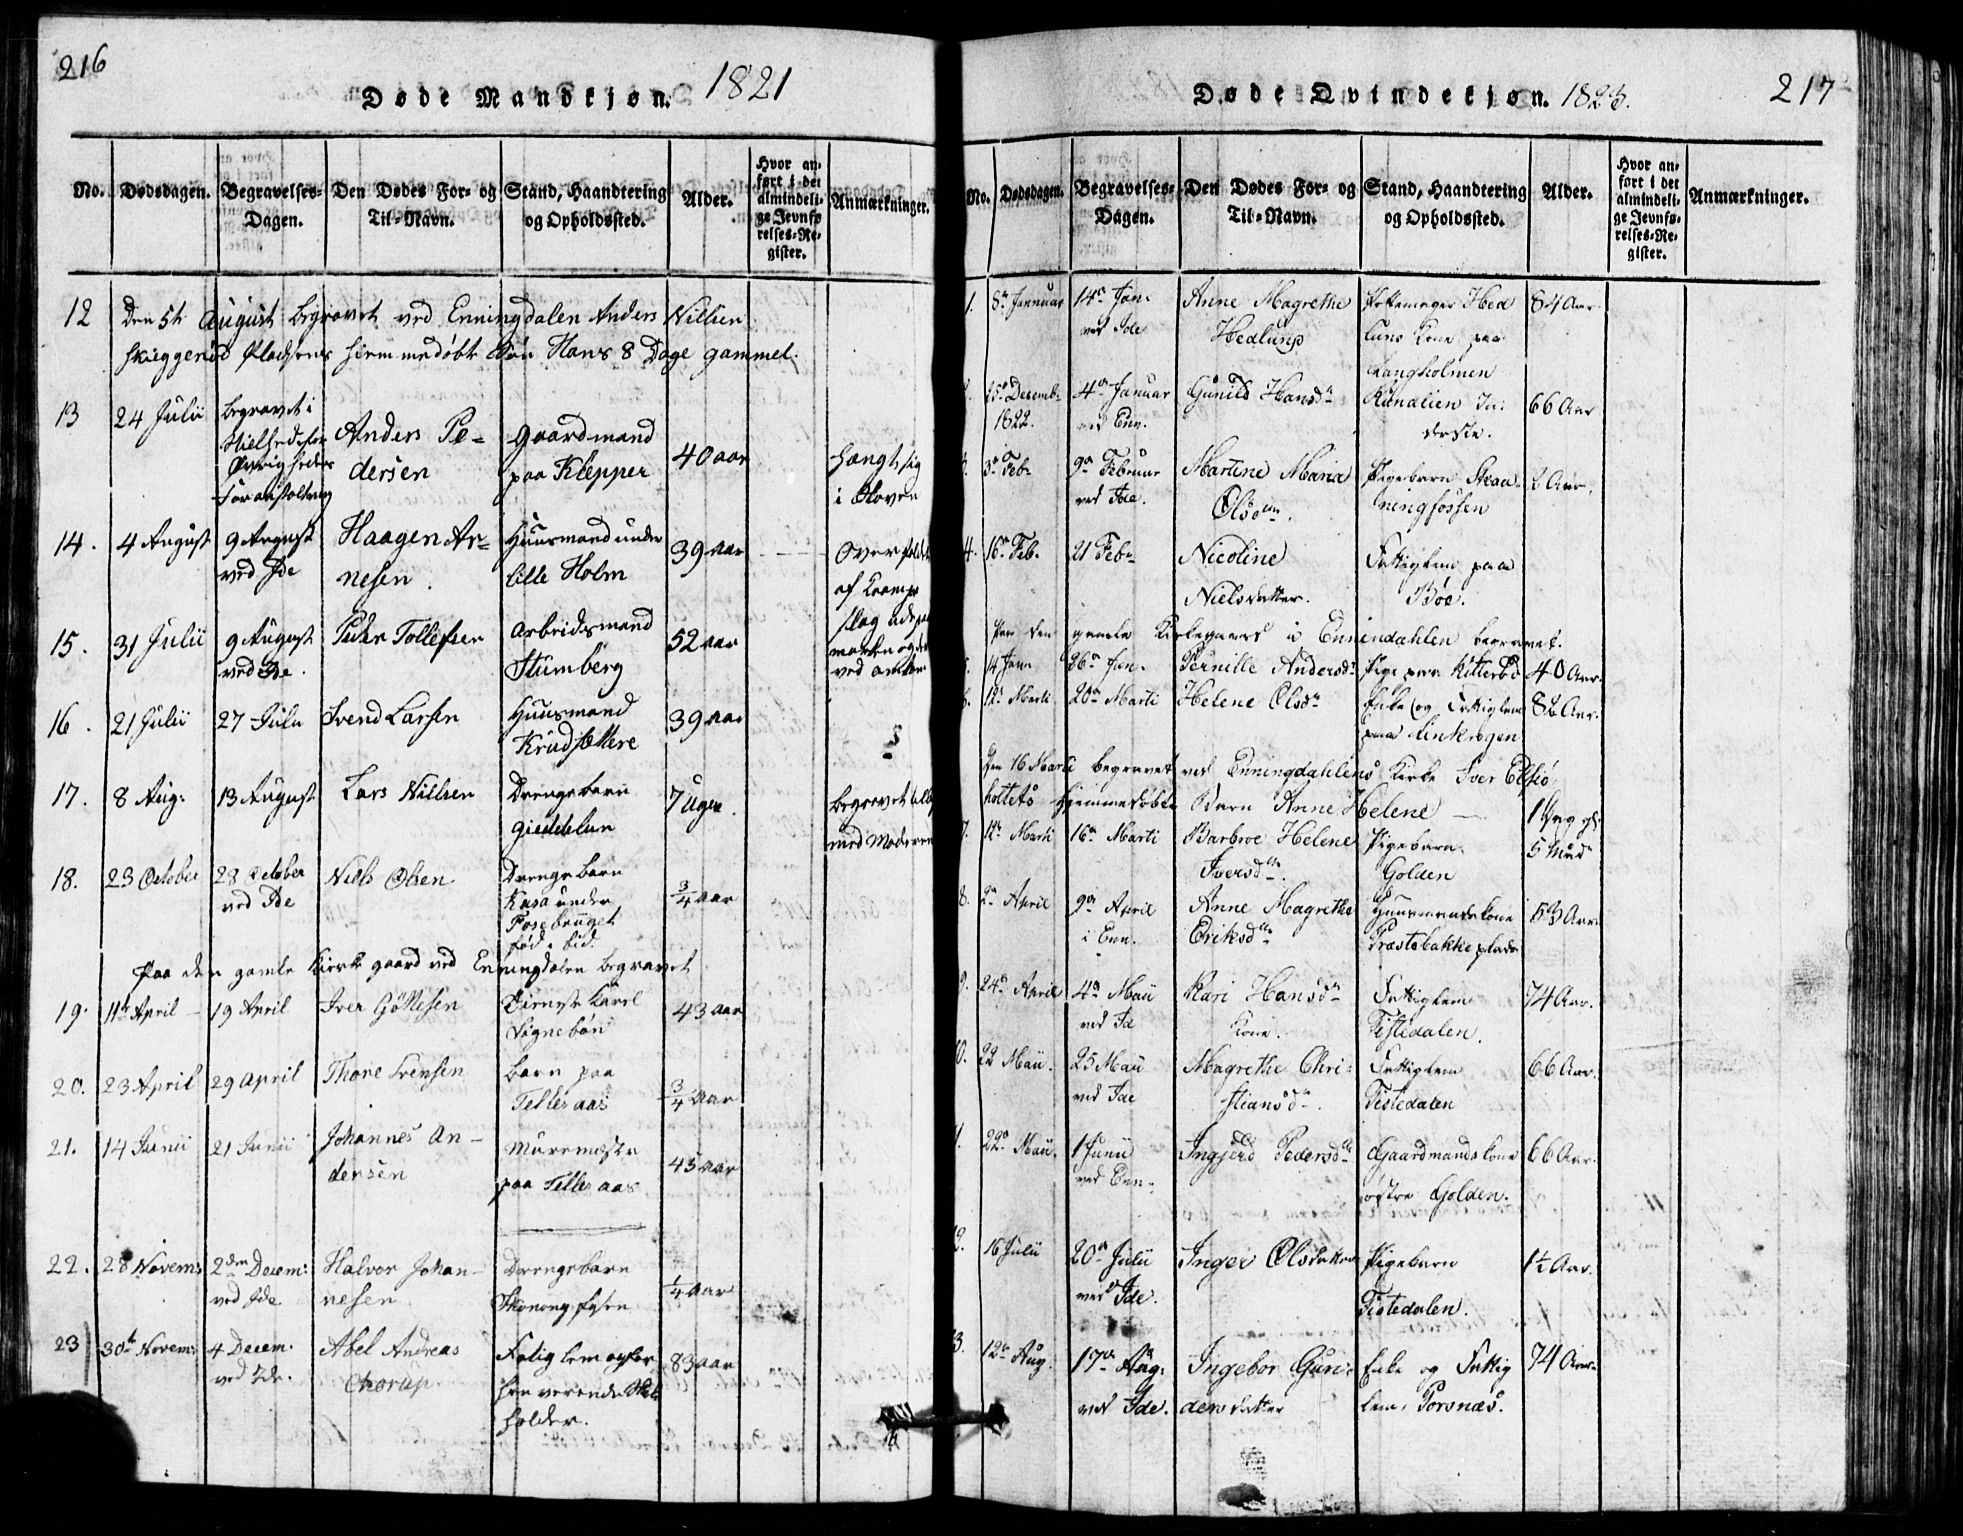 216
Døde Mandkjøn. 1821
No.
Dødsdagen.
Begravelses-
Dagen.
Den Dødes For- og
Til-Navn.
Stand, Haandtering
og Opholdssted.
Alder.
Hvor an-
ført i det
almindeli-
ge Jevnfø-
relses-Re-
gister.
Anmærkninger.
12 Den 5te August begravet ved Enningdalen Anders Nilsen
Pladsens hiemmedøbt Søn Hans 8 Dage gammel.
13 24 Julii
begravet i
Øvrigheders
Foranstaltning
Anders Pe-
dersen
Gaardmand
paa Klepper
40 aar
hængt sig
i Skoven
14. 4 August
9 August
ved Ide
Haagen Ar-
nesen.
Huusmand under
lille Holm
39 aar
15. 31 Julii
9 August
ved Ide.
Peder Tollefsen
Arbeidsmand
Stumberg
52 aar
16. 21 Julii
27 Julii
Svend Larsen
Huusmand
39 aar
17. 8 Aug:
13 August
Lars Nielsen
Drengebarn
7 Uger.
begravet
med Moderen
18. 23 October
28 October
ved Ide
Niels Olsen
Drengebarn
Kasa under
Fosebruget
3/4 aar
Paa den gamle Kierkegaard ved Enningdalen begravet
19. 11te April
19 April
Iver
Tieneste Karl
Vignebøn
43 aar
20. 23 April
29 April
Thore Svensen
barn paa
Tellesaas
3/4 aar
21. 14 Junii
21 Junii
Johannes An-
dersen
Muremester
paa Tellesaas
45 aar
22. 28 Novem:
2den Decem:
ved Ide.
Halvor Johan-
nesen
Drengebarn
1/4 aar
23 30te Novem:
4 Decem.
ved Ide.
Abel Andreas
Chorup.
83 aar
holder.
217
Døde Qvindekjøn. 1823.
No.
Dødsdagen.
Begravelses-
Dagen.
Den Dødes For- og
Til-Navn.
Stand, Haandtering
og Opholdssted.
Alder.
Hvor an-
ført i det
almindeli-
ge Jevnfø-
relses-Re-
gister.
Anmærkninger.
1. 8de Januar
14de Jan.
ved Ide
Anne Magrethe
Hedlund
Pottemager Hed
luns Kone paa
Langholmen
84 Aar.
25de Decemb.
1822.
4de Januar
ved Enn.
Gunild Hansdr
66 Aar
3de Feb.
9de Februar
ved Ide.
Martine Maria
Olsdtr.
Pigebarn Skaa-
ningfossen
4. 16de Feb.
21 Feb.
Nicoline
Nielsdatter.
Fattiglem paa
Bøe.
Paa den gamle Kirkegaard i Ennindahlen begravet.
14 Jan.
26de Jan.
Pernille Andersdr
Pige paa Kitterbø
40 Aar.
12te Marti
20de Marti
Helene Olsdr
Enke og Fattiglem
paa Linkrogen
Den 16 Marti begravet ved Enningdahlens Kirke Iver Elsiø
holtets hjemmedøbte Barn Anne Helene
1 Dag gl.
12te Marti
16de Marti
Barbroe Helene
Iversdtr.
Pigebarn
Golden
5 Mdr
8. 2de April
9de April
i Enn.
Anne Magrethe
Eriksdtr
Huusmandskone
Præstebakke plads
53 Aar.
9. 24de April
4de Maii
ved Id
Kari Hansdr
Kone.
Fattiglem
Tistedalen.
74 Aar.
22 Maii.
25 Maii
ved Ide
Magrethe Chri-
stiansdr.
Fattiglem
Tistedalen
66 Aar.
22de Maii.
1 Junii
ved Enn.
Ingjerd Pedersdtr
Gaardmandskone
østre Golden.
66 Aar.
16 Julii
20de Julii
ved Ide.
Inger Olsdatter
Pigebarn
Tistedalen.
1½ Aar.
12te Aug.
17de Aug.
ved Ide.
Ingebor Gun-
dersdatter
Enke og Fattig
lem, Porsnæs.
74 Aar.